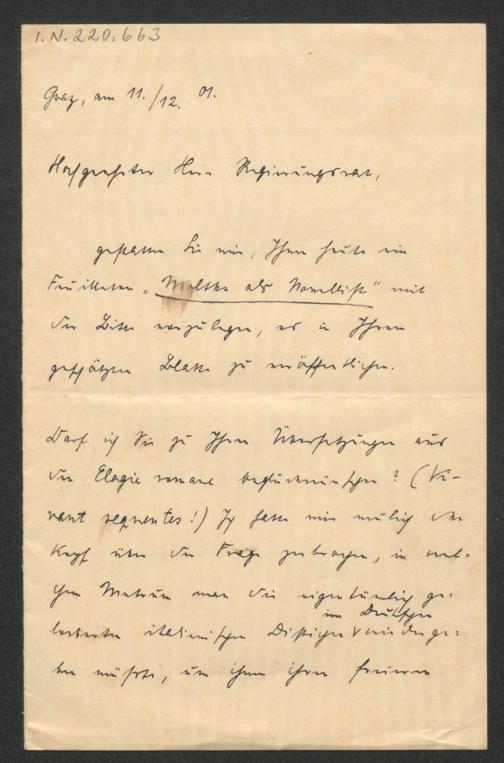 I.N. 220.663
Graz, am 11./12. 01.
Hochgeehrter Herr Regierungsrat,
gestatten Sie mir, Ihnen heute ein
Feuilleton „Moltke als Novellist" mit
der Bitte vorzulegen, es in Ihrem
geschätzten Blatte zu veröffentlichen.
Darf ich Sie zu Ihren Übersetzungen aus
den Elegie romane beglückwünschen? (Vi-
vant sequentes!) Ich hatte mir neulich den
Kopf über die Frage zerbrochen, in wel-
chem Metrum man die eigentümlich ge-
im Deutschen
italienischen Distichen wiederge-
ben müsste, um ihnen ihren freieren